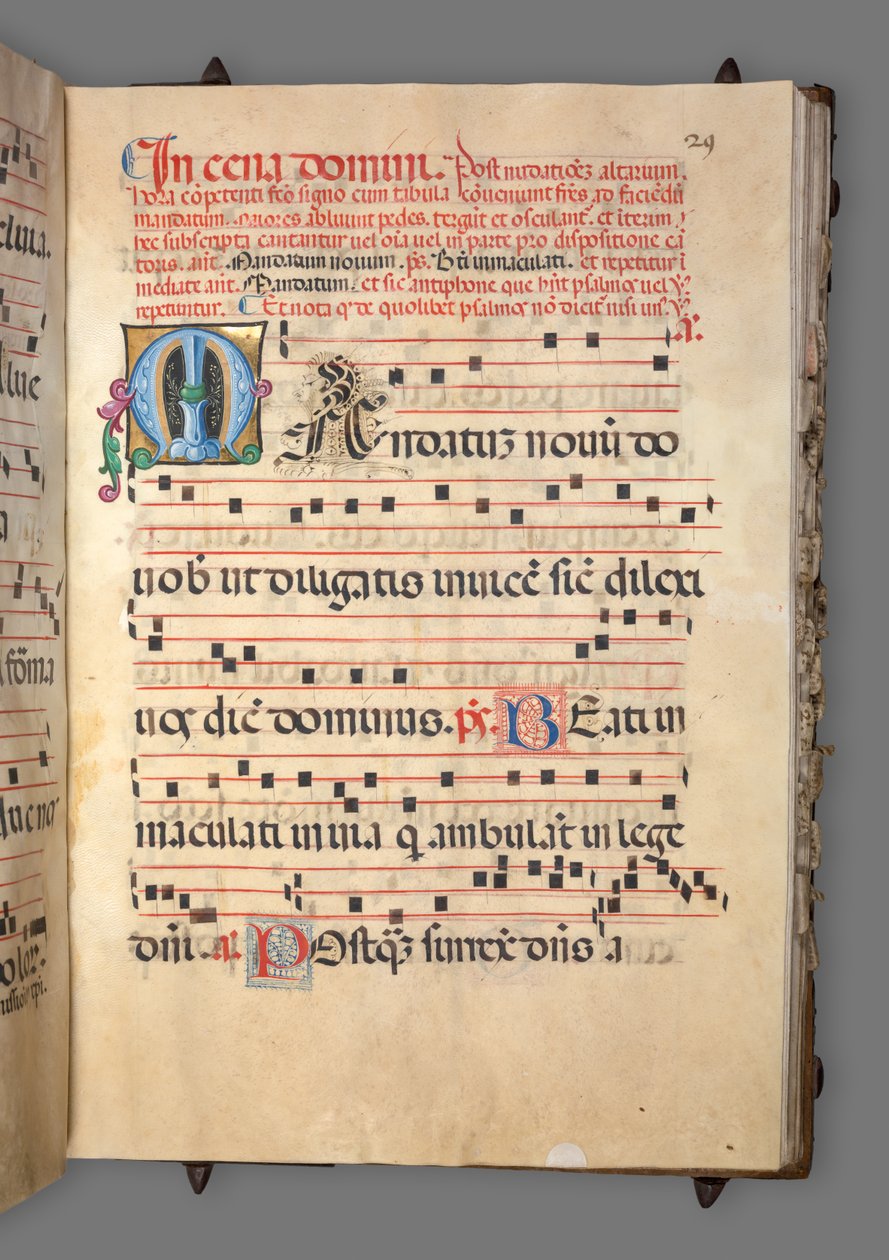 29
In cena domini. Post nudatiõez altarium.
hora cõpetenti fcõ signo cum tabula cõueniunt fr̃es, ad faciẽdũ
mandatum. Maiores abluunt pedes. tergũt et osculant̃. et ĩterim
hec subscripta cantantur uel oĩa uel in parte pro dispositione cã
toris. añt. Mandatum nouum. ps̃. Bt̃i inmaculati. et repetitur ĩ
mediate ant̃. Mandatum. et sic antiphone que hñt psalmos uel
repetuntur. Et nota q̃ de quolibet psalmos nõ dicit̃ nisi un̾. ℣.
Mandatuz nouũ do
uob̾ ut diligatis inuicẽ sic̃ dilexi
uos dic̃ dominus. ps̃. Beati in
maculati in uia q̃ ambulãt in lege
dñi. a. Postq̃z surrex̾ dñs a